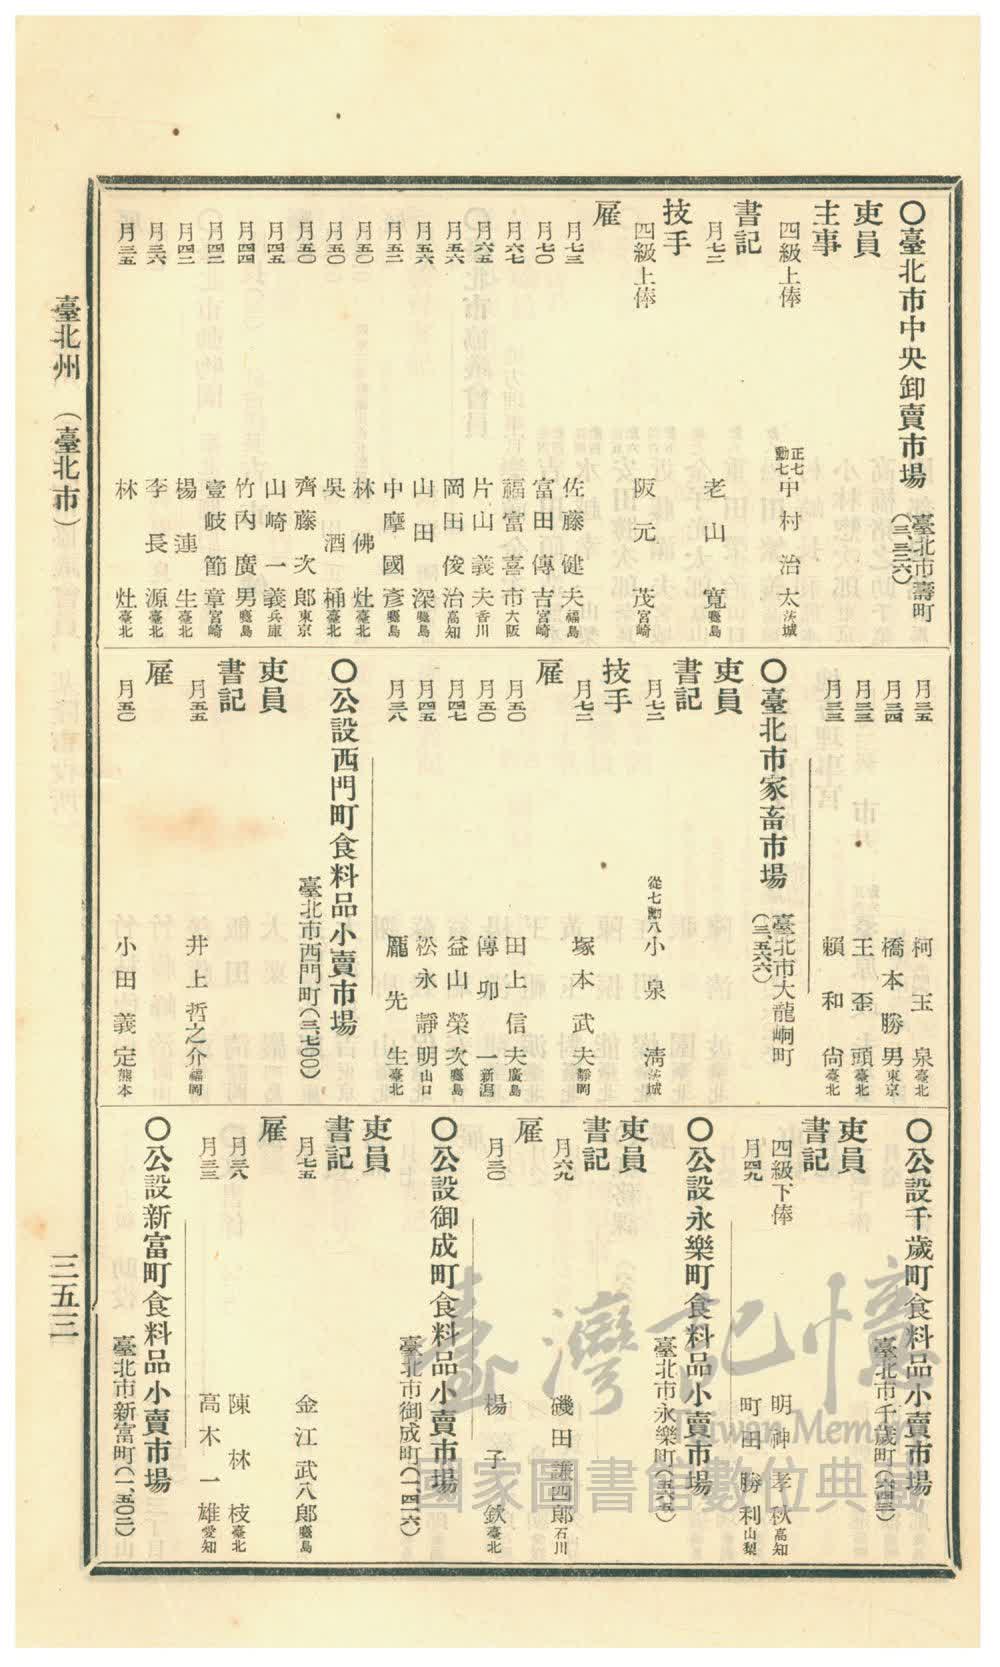 〇臺北市中央卸賣市場 臺北市壽町(三、三三六)
吏員
主事
四級上俸 正七勳七 中村治太 茨城
書記
月七二 老山寬 鹿兒島
技手
四級上俸 阪元茂 宮崎
雇
月七三 佐藤健夫 福島
月七〇 富田傳吉 宮崎
月六七 福富喜市 大阪
月六五 片山義夫 香川
月五六 岡田俊治 高知
月五六 山田深 鹿兒島
月五二 中摩國彥 鹿兒島
月五〇 林佛灶 臺北
月五〇 吳酒桶 臺北
月五〇 齊藤次郎 東京
月四五 山崎一義 兵庫
月四四 竹內廣男 鹿兒島
月四二 壹岐節章 宮崎
月四二 楊連生 臺北
月三六 李長源 臺北
月三五 林灶 臺北
月三五 柯玉泉 臺北
月三四 橋本勝男 東京
月三三 王歪頭 臺北
月三三 賴和尙 臺北
〇臺北市家畜市場 臺北市大龍峒町(三、五六六)
吏員
書記
月七二 從七勳八 小泉淸 茨城
技手
月七二 塚本武夫 靜岡
雇
月五〇 田上信夫 廣島
月五〇 傳卯一 新潟
月四七 益山榮次 鹿兒島
月四五 松永靜明 山口
月三八 龐先生 臺北
〇公設西門町食料品小賣市場
臺北市西門町(三、七〇〇)
吏員
書記
月五五 井上哲之介 福岡
雇
月五〇 小田義定 熊本
〇公設千歲町食料品小賣市場
臺北市千歲町(六四三)
吏員
書記
四級下俸 明神孝秋 高知
月四九 町田勝利 山梨
〇公設永樂町食料品小賣市場
臺北市永樂町(五六五)
吏員
書記
月六九 磯田謙四郎 石川
雇
月三〇 楊子欽 臺北
〇公設御成町食料品小賣市場
臺北市御成町(一、四一六)
吏員
書記
月七五 金江武八郎 鹿兒島
雇
月三八 陳林枝 臺北
月三三 高木一雄 愛知
〇公設新富町食料品小賣市場
臺北市新富町(一、五〇二)
臺北州 (臺北市)
三五三
臺灣記憶
Taiwan Memory
國家圖書館數位典藏